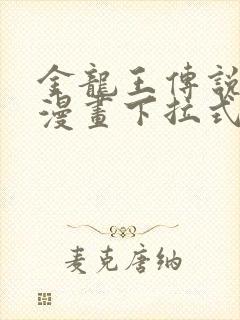 金龍王傳說
漫畫下拉式
麦克唐纳